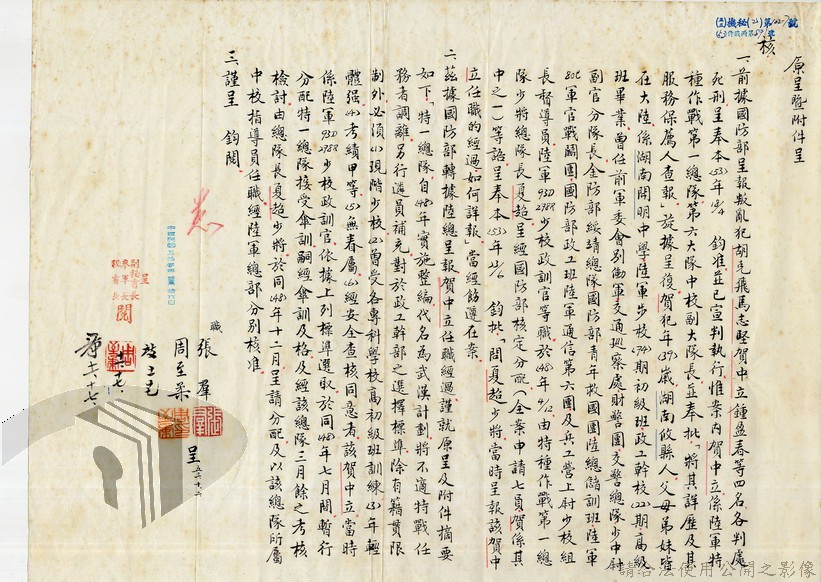 核
原呈暨附件呈
一、前據國防部呈報叛亂犯胡先飛馬志堅賀中立鍾盈春等四名各判處
死刑呈奉本(53)年
鈞准並已宣判執行惟案內賀中立係陸軍特
種作戰第一總隊第六大隊中校副大隊長並奉批「將其詳歷及其
服務保薦人查報」茲據呈復賀犯年(39)歲湖南攸縣人父母弟妹皆
在大陸係湖南開明中學陸軍步校(74)期初級班政工幹校(22)期高級
班畢業曾任前軍委會別働軍交通巡察處財警團交警總隊少中尉
副官分隊長金防部綏靖總隊國防部青年救國團陸總儲訓班陸軍
80C軍官戰鬭團國防部政工班陸軍通信第六團及兵工營上尉少校組
長督導員陸軍93D278R少校政訓官等職於(48)年4/12由特種作戰第一總
隊少將總隊長夏超呈經國防部核定分配(全案申請七員賀係其
中之一)等語呈奉本(53)年
鈞批「問夏超少將當時呈報該賀中
立任職的經過如何詳報」當經飭遵在案
二、茲據國防部轉據陸總呈報賀中立任職經過謹就原呈及附件摘要
如下「特一總隊自(48)年實施整編代名為武漢計劃將不適特戰任
務者調離另行遴員補充對於政工幹部之選擇標準除有籍貫限
制外必須(1)現階少校(2)曾受各專科學校高初級班訓練(3)年輕
體强(4)考績甲等(5)無眷屬(6)經安全查核同意者該賀中立當時
係陸軍93D278R少校政訓官依據上列標準選取於同(48)年七月間暫行
分配特一總隊接受傘訓嗣經傘訓及格及經該總隊三月餘之考核
檢討由總隊長夏超少將於同(48)年十二月呈請分配及以該總隊所屬
中校指導員任職經陸軍總部分別核准
三、謹呈
鈞閱
職
張羣
周至柔
呈
呈
副秘書長
參軍長
秘書長
閱
請合法使用公開之影像